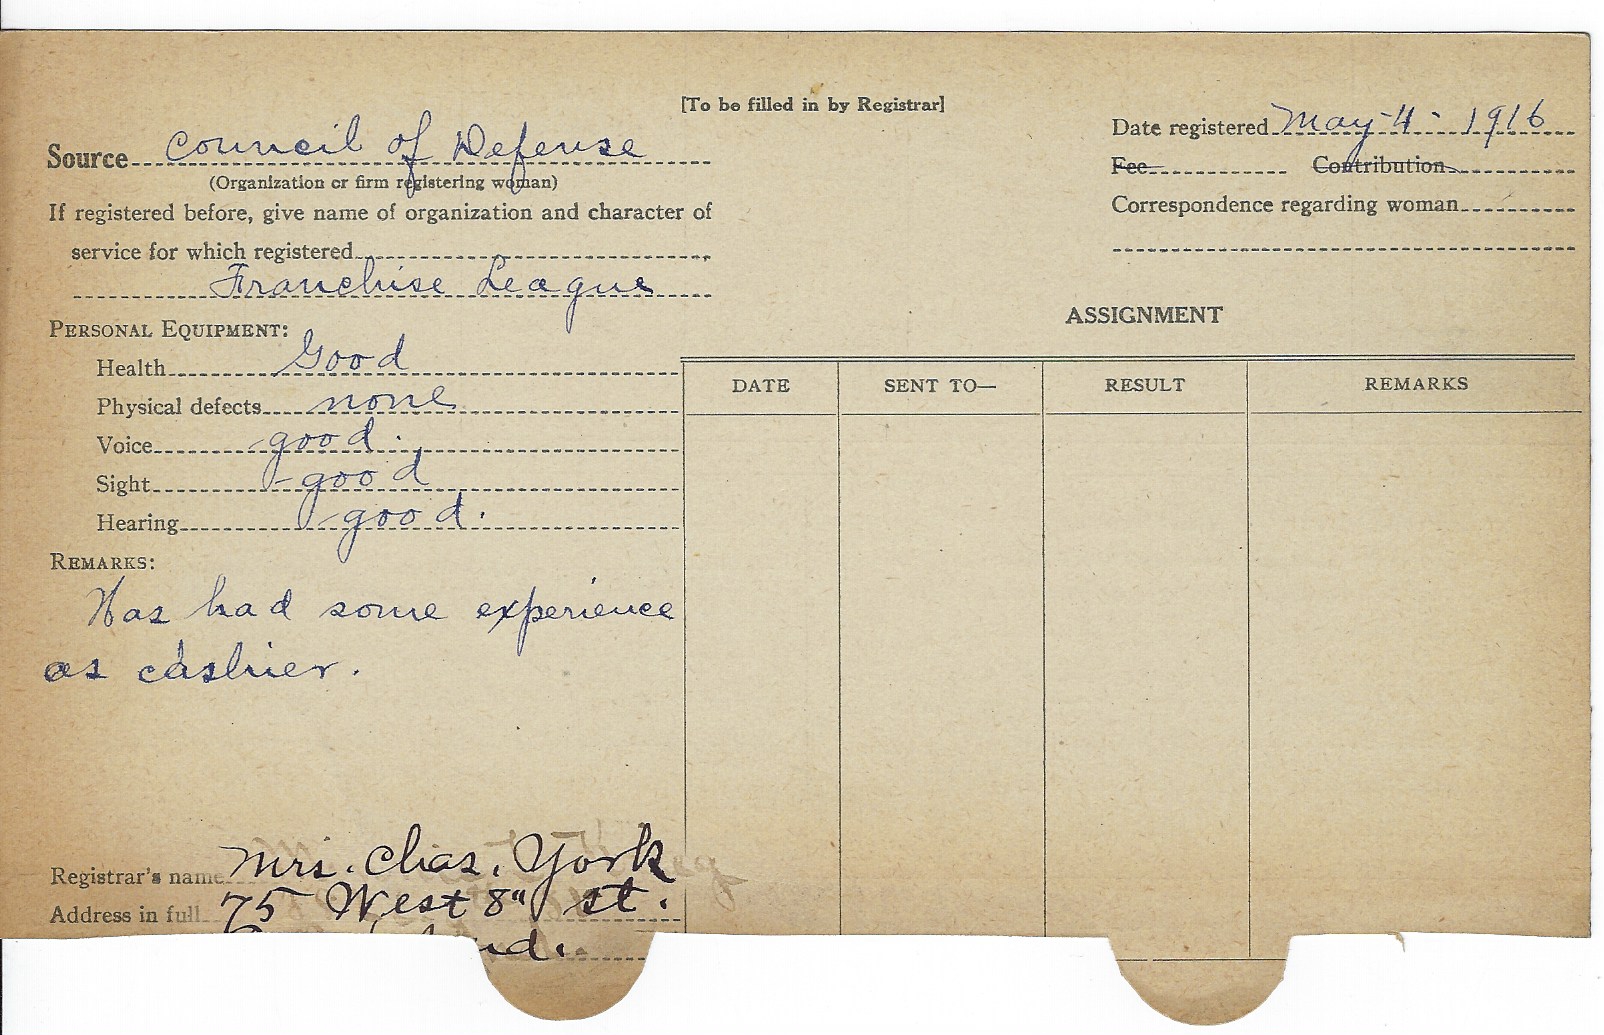 [To be filled in by Registrar]
Source Council of Defense
(Organization or firm registering woman)
If registered before, give name of organization and character of
service for which registered
Franchise League
PERSONAL EQUIPMENT:
Health Good
Physical defects none
Voice good.
Sight good
Hearing good.
REMARKS:
Has had some experience
as cashier.
Registrar's name Mrs. Chas. York
Address in full 75 West 8" St.
Ind.
Date registered May-4-1916
Fee Contribution
Correspondence regarding woman
ASSIGNMENT
DATE SENT TO— RESULT REMARKS